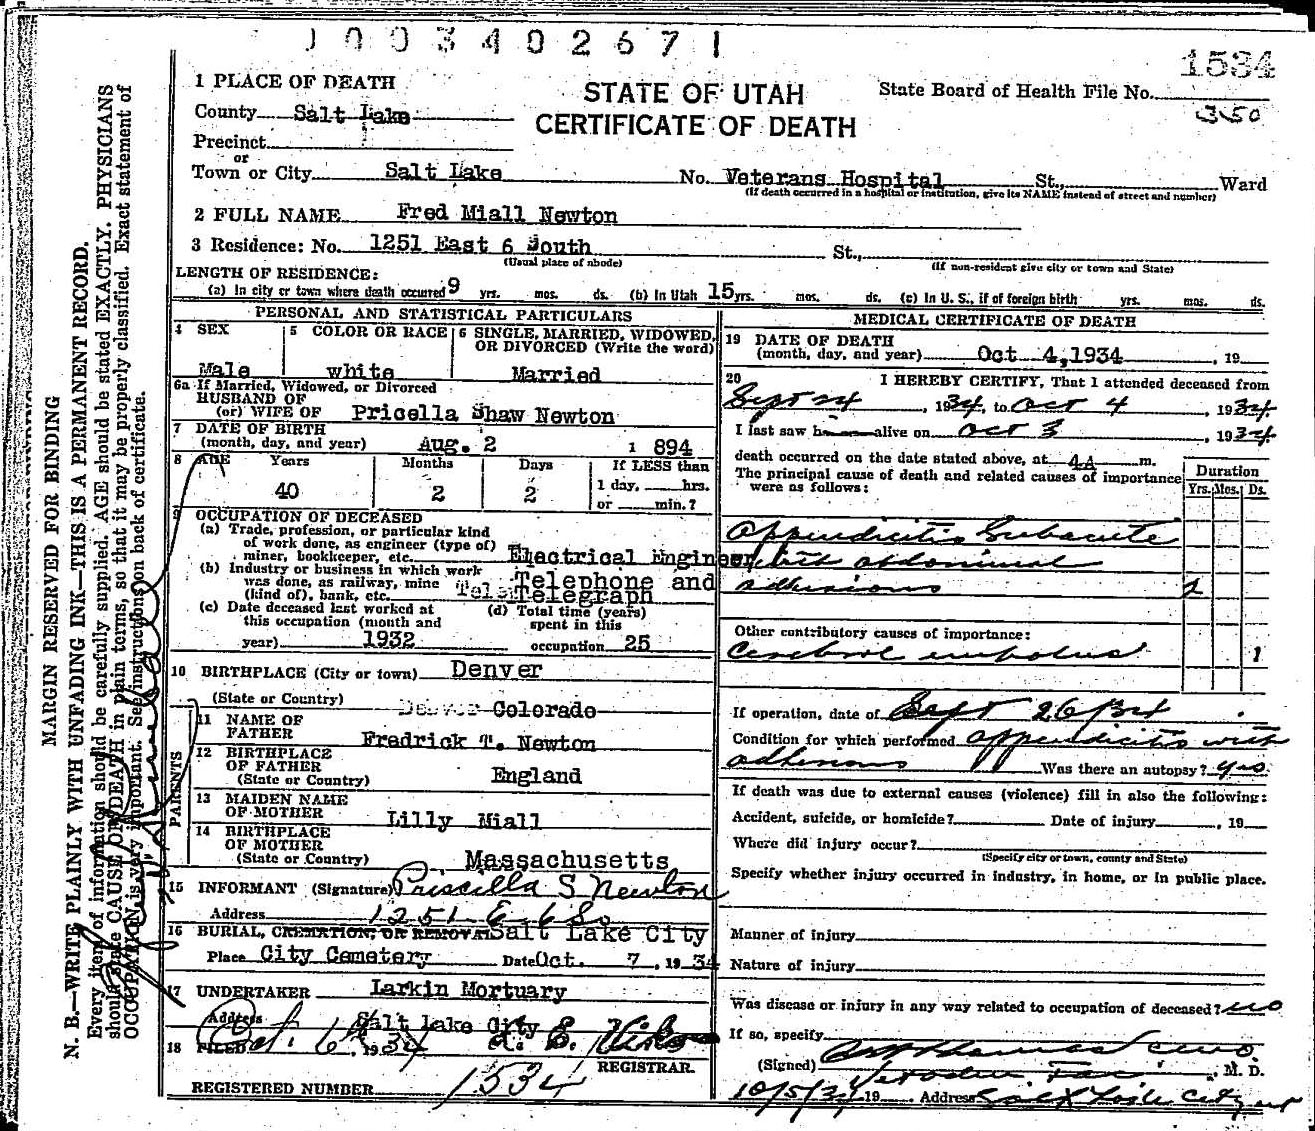 1 0 0 3 4 0 2 6 7 1
1534
1 PLACE OF DEATH
STATE OF UTAH
CERTIFICATE OF DEATH
State Board of Health File No.
350
County Salt Lake
Precinct
or
Town or City Salt Lake No. Veterans Hospital St., Ward
(If death occurred in a hospital or institution, give its NAME instead of street and number)
2 FULL NAME Fred Miall Newton
3 Residence: No. 1251 East 6 South St.,
(Usual place of abode) (If non-resident give city or town and State)
LENGTH OF RESIDENCE:
(a) In city or town where death occurred 9 yrs. mos. ds. (b) In Utah 15 yrs. mos. ds. (c) In U. S., if of foreign birth yrs. mos. ds.
PERSONAL AND STATISTICAL PARTICULARS
4 SEX 5 COLOR OR RACE 6 SINGLE, MARRIED, WIDOWED, OR DIVORCED (Write the word)
Male white Married
6a If Married, Widowed, or Divorced
HUSBAND OF
(or) WIFE OF Pricella Shaw Newton
7 DATE OF BIRTH
(month, day, and year) Aug. 2 1 894
8 AGE Years Months Days If LESS than
1 day, hrs.
or min.?
40 2 2
9 OCCUPATION OF DECEASED
(a) Trade, profession, or particular kind
of work done, as engineer (type of)
miner, bookkeeper, etc. Electrical Engineer
(b) Industry or business in which work
was done, as railway, mine
(kind of), bank, etc. Telephone and
Telegraph
(c) Date deceased last worked at
this occupation (month and
year) 1932
(d) Total time (years)
spent in this
occupation 25
10 BIRTHPLACE (City or town) Denver
(State or Country) Denver Colorado
PARENTS
11 NAME OF
FATHER Fredrick T. Newton
12 BIRTHPLACE
OF FATHER
(State or Country) England
13 MAIDEN NAME
OF MOTHER Lilly Miall
14 BIRTHPLACE
OF MOTHER
(State or Country) Massachusetts
15 INFORMANT (Signature) Priscilla S Newton
Address 1251 E-6 So
16 BURIAL, CREMATION, OR REMOVAL Salt Lake City
Place City Cemetery Date Oct. 7, 1934
17 UNDERTAKER Larkin Mortuary
Address Salt lake City
18 FILED Oct. 6 1934
REGISTRAR.
REGISTERED NUMBER 1534
MEDICAL CERTIFICATE OF DEATH
19 DATE OF DEATH
(month, day, and year) Oct 4, 1934, 19
20 I HEREBY CERTIFY, That I attended deceased from
Sept 24, 1934, to Oct 4, 1934
I last saw h alive on Oct 3, 1934
death occurred on the date stated above, at 4 A m.
The principal cause of death and related causes of importance
were as follows:
Duration
Yrs. Mos. Ds.
Appendicitis Subacute
with abdominal
adhesions 2
Other contributory causes of importance:
Cerebral embolus 1
If operation, date of Sept 26/34
Condition for which performed appendicitis with
adhesions Was there an autopsy? yes
If death was due to external causes (violence) fill in also the following:
Accident, suicide, or homicide? Date of injury, 19
Where did injury occur?
(Specify city or town, county and State)
Specify whether injury occurred in industry, in home, or in public place.
Manner of injury
Nature of injury
Was disease or injury in any way related to occupation of deceased? no
If so, specify
(Signed) M. D.
10/5/34 19 Address Salt Lake City ut
MARGIN RESERVED FOR BINDING
N. B.—WRITE PLAINLY WITH UNFADING INK—THIS IS A PERMANENT RECORD.
Every item of information should be carefully supplied. AGE should be stated EXACTLY. PHYSICIANS
should state CAUSE OF DEATH in plain terms, so that it may be properly classified. Exact statement of
OCCUPATION is very important. See instructions on back of certificate.